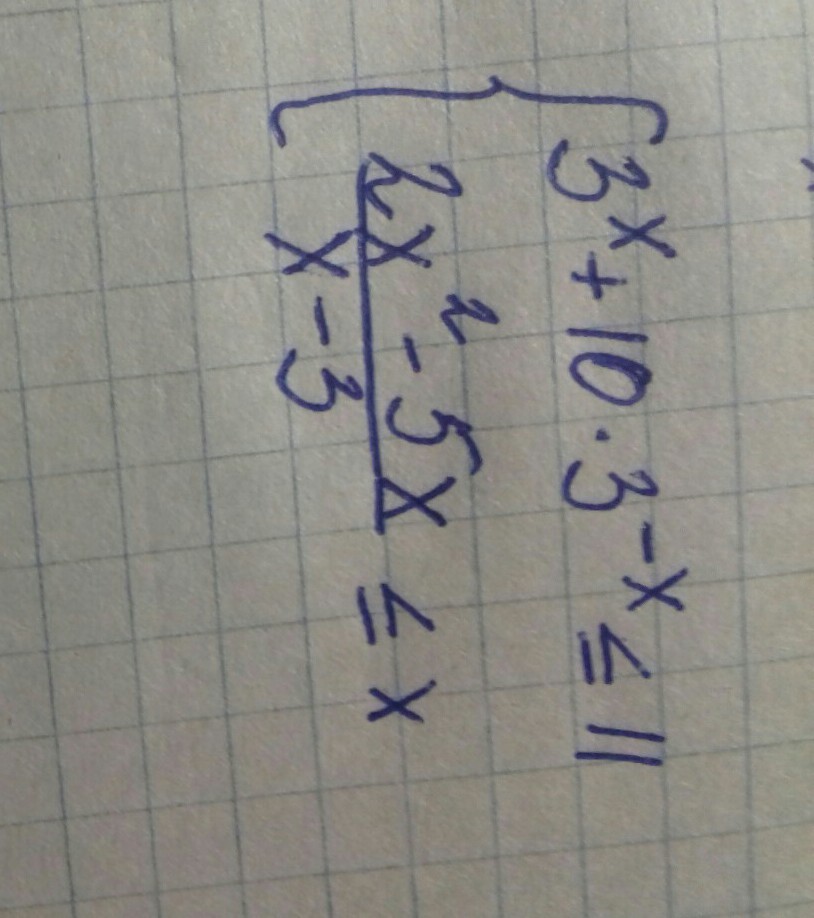 3^x + 10 · 3^{-x} ≤ 11
2x² - 5x
x - 3
≤ x